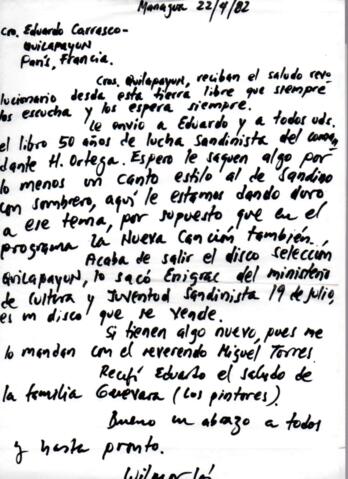 Managua 22/9/82
Cro. Eduardo Carrasco-
QUILAPAYUN
París, Francia.
Cros. Quilapayun, reciban el saludo revo
lucionario desda esta tierra libre que siempre
los escucha y los espera siempre.
Le envio a Eduardo y a todos uds.
el libro 50 años de lucha Sandinista del coman
dante H. Ortega. Espero le saquen algo por
lo menos un canto estilo al de Sandino
con sombrero, aquí le estamos dando duro
a ese tema, por supuesto que en el
programa la Nueva Canción también.
Acaba de salir el disco selección
QUILAPAYUN, lo sacó Enigrac del ministerio
de Cultura y Juventud Sandinista 19 de julio,
es un disco que se vende.
Si tienen algo nuevo, pues me
lo mandan con el reverendo Miguel Torres.
Recibí Eduardo el saludo de
la familia Guevara (Los pintores).
Bueno un abrazo a todos
y hasta pronto.